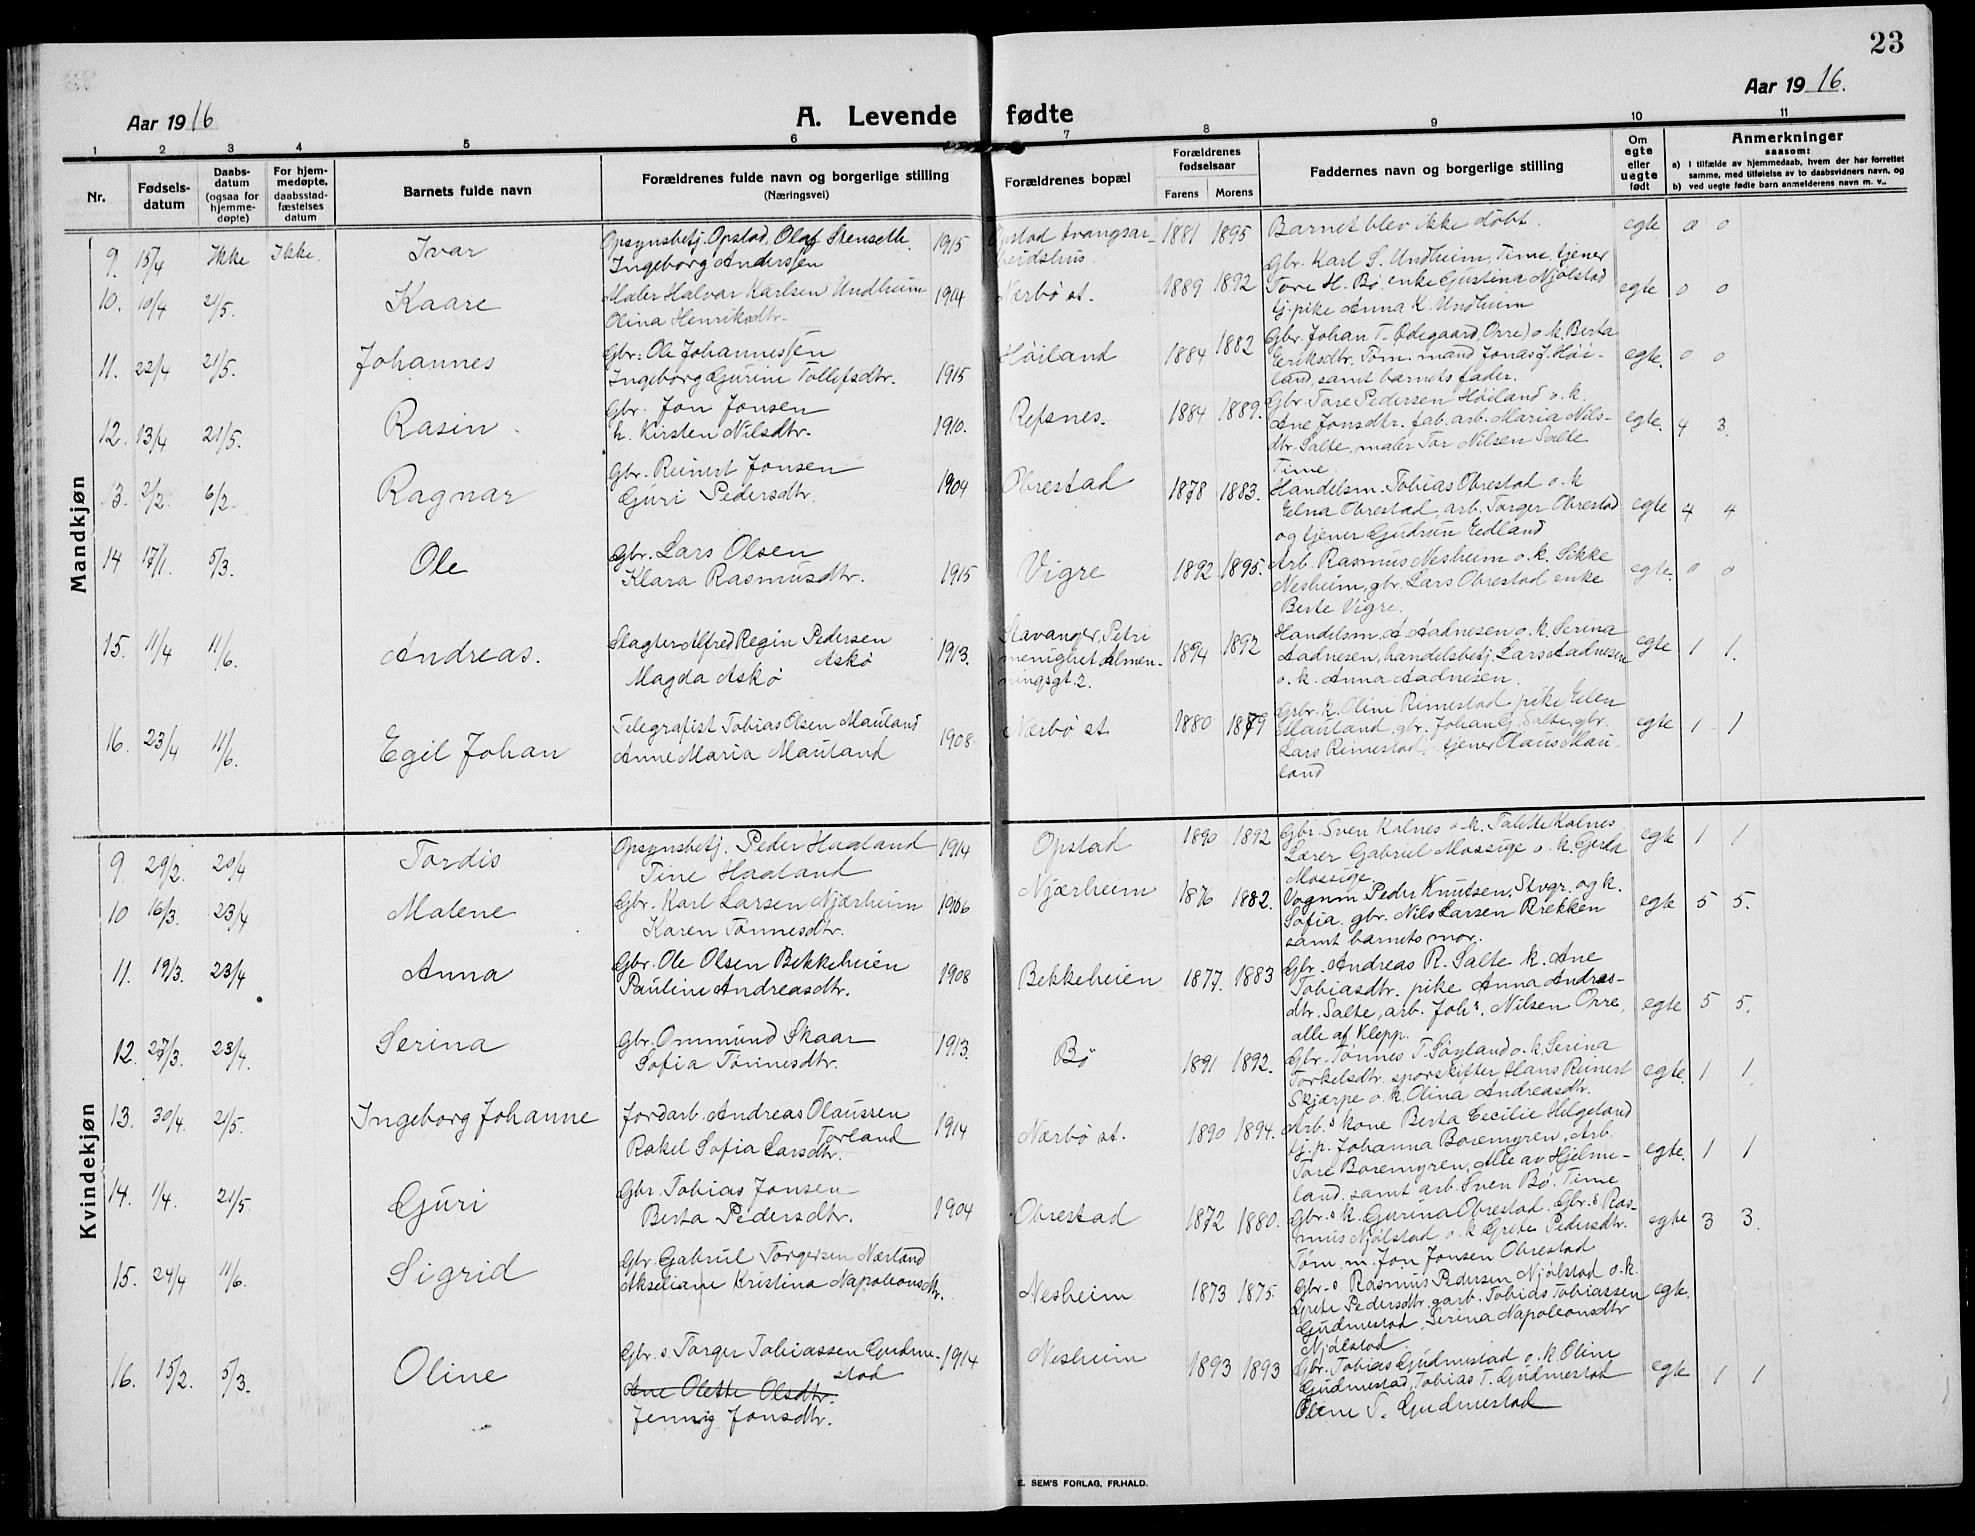 23
Aar 1916
A. Levende fødte
Aar 1916.
1 2 3 4 5 6 7 8 9 10 11
Nr.
Fødsels-
datum
Daabs-
datum
(ogsaa for
hjemme-
døpte)
For hjem-
medøpte,
daabsstad-
fæstelses
datum
Barnets fulde navn
Forældrenes fulde navn og borgerlige stilling
(Næringsvei)
Forældrenes bopæl
Forældrenes
fødselsaar
Farens Morens
Faddernes navn og borgerlige stilling
Om
egte
eller
uegte
født
Anmerkninger
saasom:
a) I tilfælde av hjemmedaab, hvem der har forrettet
samme, med tilføielse av to daabsvidners navn, og
b) ved uegte fødte barn anmelderens navn m. v..
Mandkjøn
9. 15/4 Ikke Ikke. Ivar
Opsynsbetj. Opstad, Olaf Stenseth.
Ingeborg Anderssen
1915
Opstad tvangsar-
beidshus.
1881 1895
Barnet blev ikke døbt.
egte 0 0
10. 10/4 21/5. Kaare
Maler Halvar Karlsen Undheim
Olina Henriksdtr.
1914
Nærbø st.
1889 1892
Gbr. Karl S. Undheim, Time, tjener
Tore H. Bø, enke Gustina Njølstad
tj. pike Anna K. Undheim
egte 0 0
11. 22/4 21/5. Johannes
Gbr: Ole Johannessen
Ingeborg Gurine Tollefsdtr.
1915
Høiland
1884 1882
Gbr. Johan T. Ødegaard, Orre) o. k. Berta
Eriksdtr. Tøm. mand Jonas J. Høi-
land, samt barnets fader.
egte. 0 0
12. 13/4 21/5. Rasin.
Gbr. Jon Jonsen
h. Kirsten Nilsdtr.
1910.
Refsnes.
1884 1889.
Gbr. Tore Pedersen Høiland o. k.
Ane Jonsdtr. fab. arb. Maria Nils-
dtr. Salte, maler Tor Nilsen Salte
Time.
egte. 4 3.
13. 2/2. 6/2. Ragnar
Gbr. Reinert Jonsen
Guri Pedersdtr.
1904
Obrestad
1878 1883.
Handelsm. Tobias Obrestad o. k
Elna Obrestad, arb. Torger Obrestad
og tjener Gudrun Eidland
egte 4 4
14 17/1. 5/3. Ole
Gbr. Lars Olsen
Klara Rasmusdtr.
1915
Vigre
1892 1895.
Arb. Rasmus Nesheim o. k. Sikke
Nesheim, gbr. Lars Obrestad enke
Berte Vigre.
egte. 0 0
15. 11/4 11/6. Andreas.
Slagter Alfred Regin Pedersen
Askø
Magda Askø
1913.
Stavanger, Petri
menighet Almen-
ningsgt. 2.
1894 1892
Handelsm. A Aadnesen o. k. Serina
Aadnesen, handelsbetj. Lars Aadnesen
o. k. Anna Aadnesen.
egte 1 1.
16. 23/4 11/6. Egil Johan
Telegrafist Tobias Olsen Mauland
Anne Maria Mauland
1908
Nærbø st.
1880 1879
Gbr. k. Olini Rimestad pike Elen
Mauland, gbr. Johan G. Salte, gbr.
Lars Rimestad tjener Olaus Mau-
land
egte 1 1
Kvindekjøn
9. 29/2. 20/4 Tordis
Opsynsbetj. Peder Haaland
Tine Haaland
1914
Opstad
1890 1892
Gbr. Sven Kalnes o. k. Talette Kalnes
Lærer Gabriel Mossige o. k. Gerla
Mossige.
egte 1 1
10 16/3. 23/4 Malene
Gbr. Karl Larsen Njærheim
Karen Tønnesdtr.
1906
Njærheim
1876 1882.
Vognm Peder Knutsen, Stvgr. og k.
Sofia. gbr. Nils Larsen Brekken
samt barnets mor.
egte 5 5.
11. 19/3. 23/4 Anna
Gbr. Ole Olsen Bekkeheien
Pauline Andreasdtr.
1908
Bekkeheien
1877. 1883
Gbr. Andreas R. Salte k. Ane
Tobiasdtr. pike Anna Andreas-
dtr. Salte, arb. Johs. Nilsen Orre,
alle af Klepp.
egte 5 5.
12. 27/3. 23/4. Serina
Gbr. Ommund Skaar
Sofia Tønnesdtr.
1913.
Bø
1891 1892.
Gbr. Tønnes T. Søyland o. k. Serina
Torkelsdtr. sporskifter Hans Reinert
Skjærpe o. k. Olina Andreasdtr.
egte. 1 1
13. 30/4. 21/5. Ingeborg Johanne
Jordarb. Andreas Olaussen
Torland
Rakel Sofia Larsdtr.
1914
Nærbø st.
1890 1894.
Arb.s kone Berta Cecilie Helgeland
tj. p. Johanna Boremyren. Arb.
Tore Boremyren, Alle av Hjelme-
land. samt arb. Sven Bø. Time
egte. 1 1
14. 1/4. 21/5. Guri
Gbr. Tobias Jonsen
Berta Pedersdtr.
1904
Obrestad
1872 1880.
Gbr.s k. Gurina Obrestad. Gbr. s. Ras-
mus Njølstad o. k Grete Pedersdtr.
Tøm. m. Jon Jonsen Obrestad
egte 3 3.
15. 24/4 11/6. Sigrid
Gbr. Gabriel Torgersen Nærland
Akseliane Kristina Napoleonsdtr.
Nesheim
1873 1875
Gbr. s. Rasmus Pedersen Njølstad o. k.
Grete Pedersdtr. garb. Tobias Tobiassen
Gudmestad, Serina Napoleonsdtr
Njølstad.
egte.
16. 15/2. 5/3. Oline
Gbr. s. Torger Tobiassen Gudme-
stad
Ane Olette Olsdtr.
Jenny Jonsdtr.
1914
Nesheim
1893 1893
Gbr. Tobias Gudmestad o. k. Oline
Gudmestad, Tobias T. Gudmestad
Oline T. Gudmestad
egte 1 1
E. SEM'S FORLAG, FR.HALD.